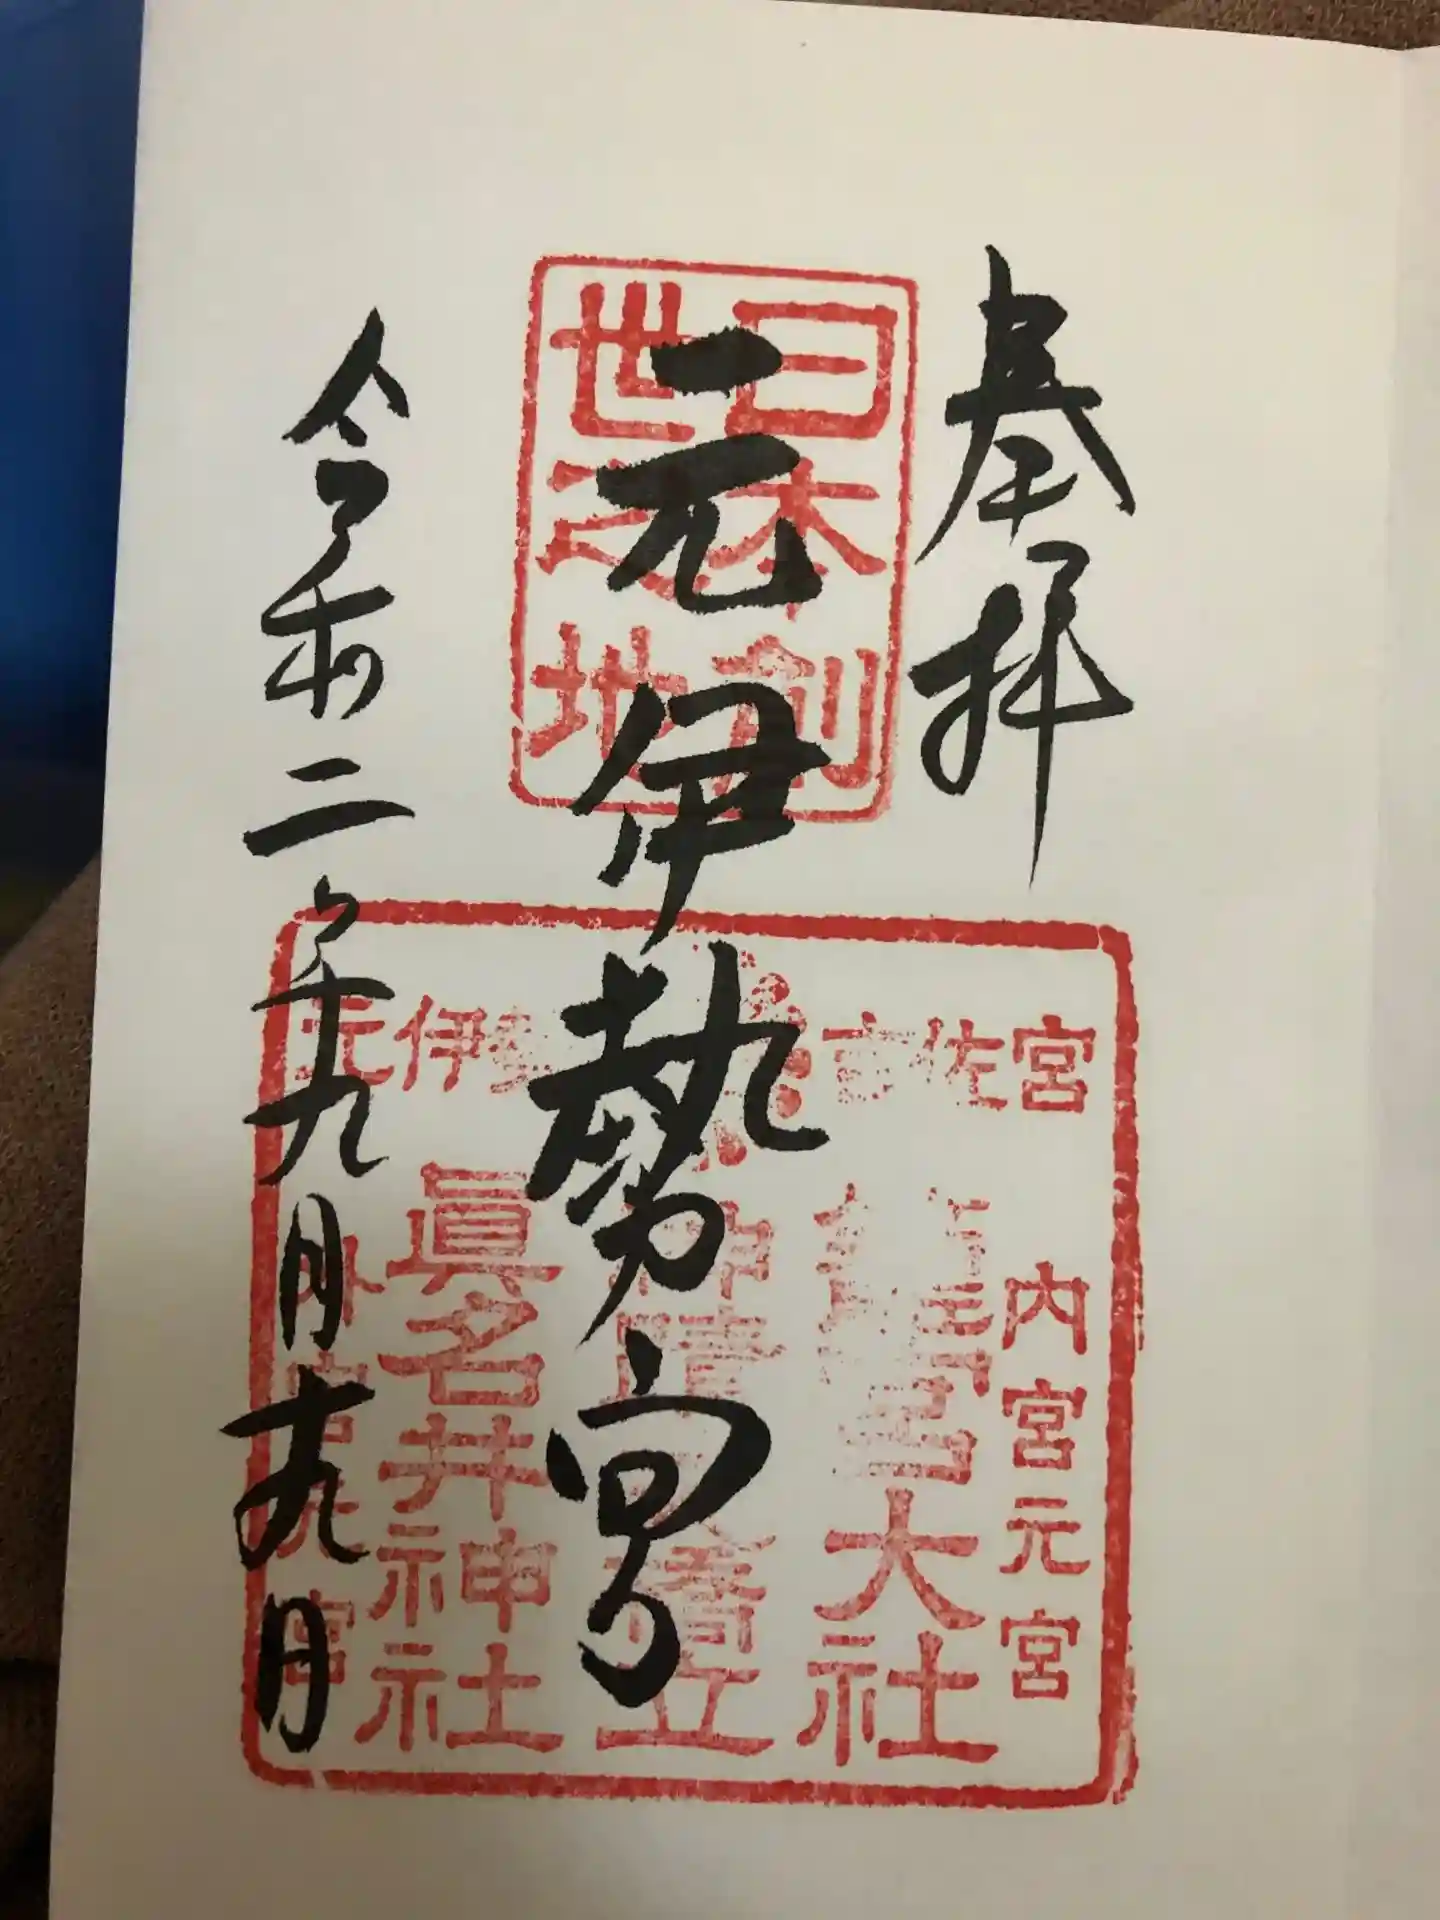 奉拝
日本創
世之地
元伊勢宮
令和二年九月十九日
元伊勢
吉佐宮
内宮元宮
籠宮大社
眞名井神社